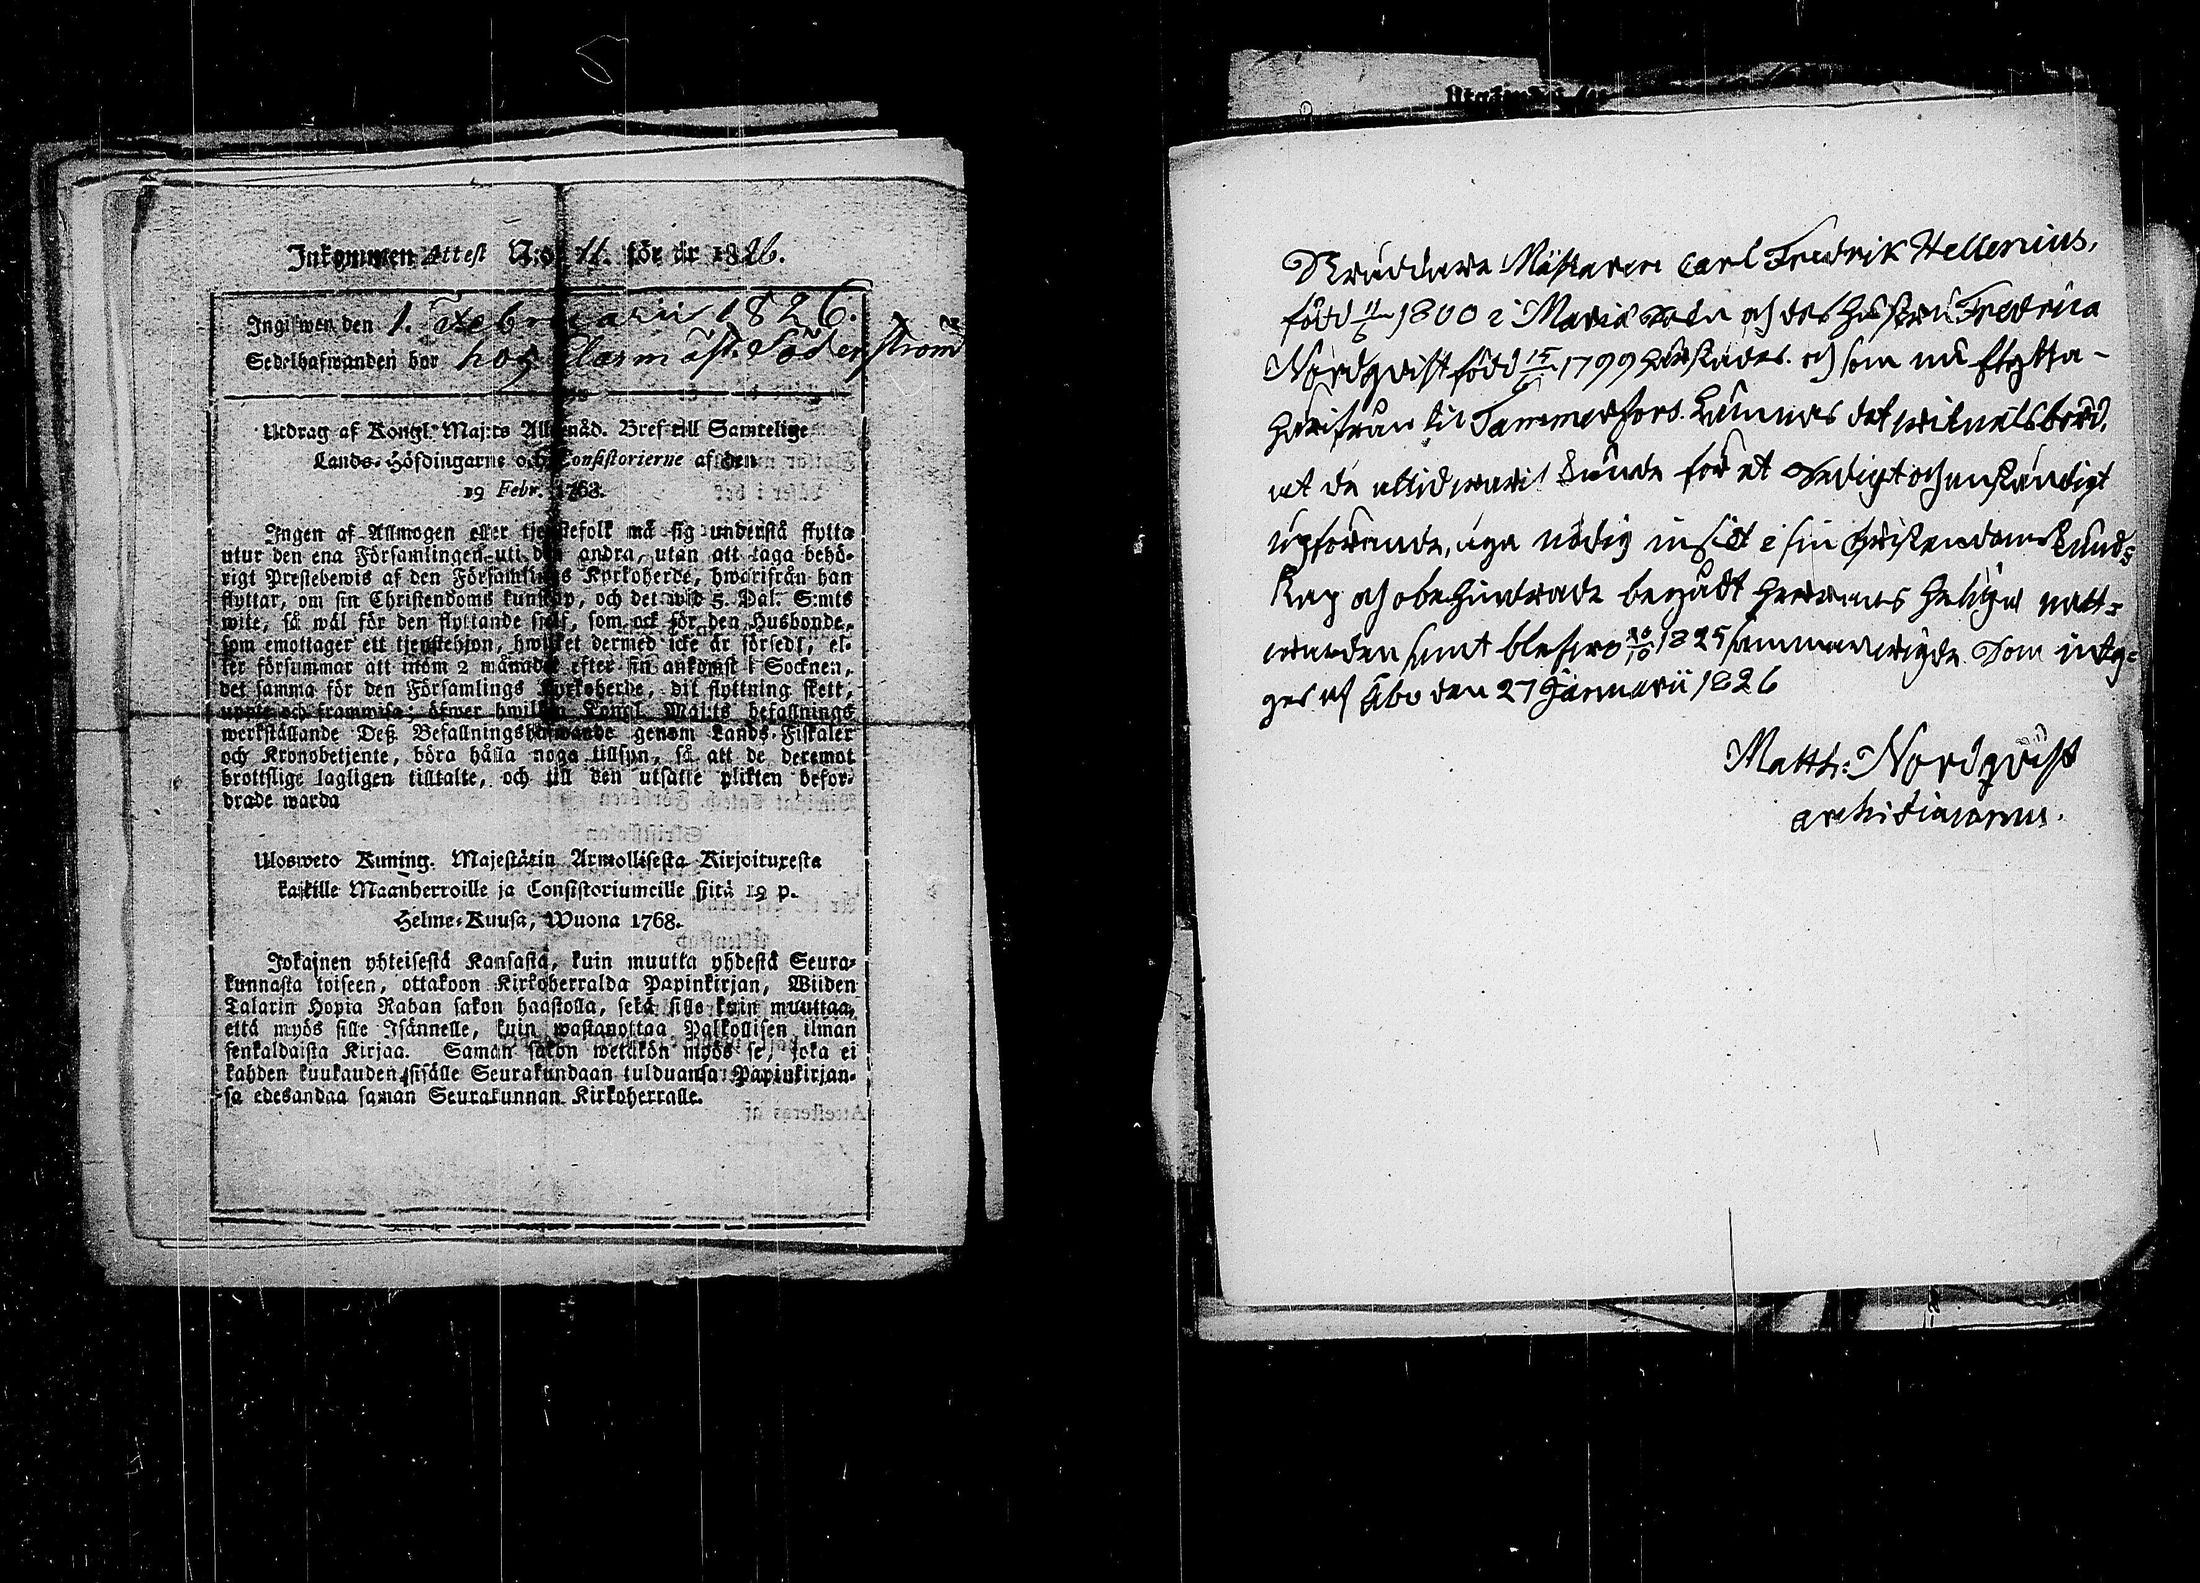 Inkommen Attest N:o 11. för år 1826.
Ingifwen den 1. Februarii 1826.
Sedelhafwanden bor hos Söderström
Utdrag af Kongl. Maj:ts Allernåd. Bref till Samtelige
Lands-Höfdingarne och Consistorierne af den
19 Febr. 1768.
Ingen af Allmogen eller tjenstefolk må sig understå flytta
utur den ena Församlingen uti den andra, utan att taga behö-
rigt Prestebewis af den Församlings Kyrkoherde, hwarifrån han
flyttar, om sin Christendoms kunskap, och det wid 5. Dal. S:mts
wite, så wäl för den flyttande sjelf, som ock för den Husbonde,
som emottager ett tjenstehjon, hwilket dermed icke är försedt, el-
ler försummar att inom 2 månader efter sin ankomst i Socknen,
det samma för den Församlings Kyrkoherde, dit flyttning skett,
uppte och framwisa; öfwer hwilken Kongl. Maj:ts befallnings
werkställande Deß Befallningshafwande genom Lands-Fiskaler
och Kronobetjente, böra hålla noga tillsyn, så att de deremot
brottslige lagligen tilltalte, och till den utsatte plikten befor-
drade warda
Ulosweto Kuning. Majestätin Armollisesta Kirjoituxesta
kaikille Maanherroille ja Consistoriumeille siitä 19 p.
Helme-Kuusa, Wuona 1768.
Jokainen yhteisestä Kansasta, kuin muutta yhdestä Seura-
kunnasta toiseen, ottakoon Kirkoherralda Papinkirjan, Wiiden
Talarin Hopia Rahan sakon haastolla, sekä sille kuin muuttaa,
että myös sille Isännelle, kuin wastanottaa Palkollisen ilman
senkaldaista Kirjaa. Saman sakon wetäkön myös se, joka ei
kahden kuukauden sisälle Seurakundaan tulduansa Papinkirjan-
sa edesandaa saman Seurakunnan Kirkoherralle.
Mästaren Carl Fredrik Hellenius,
född 11/6 1800 i Mariæ Socken och des Hustru Fredrica
Nordqvist född 15/6 1799 härstädes. och som nu flytta
härifrån til Tammerfors. Lämnas det witnelsbörd,
at de altid warit kände för et dedigt och anständigt
upförande, äga nödig insigt i sin Christendoms kund-
skap och obehindrade begådt Herrans Heliga natt-
warden samt blefwo 20/10 1825 sammanwigde. Som inty-
gas af Åbo den 27 Januarii 1826
Matth: Nordqvist
archidiaconus.